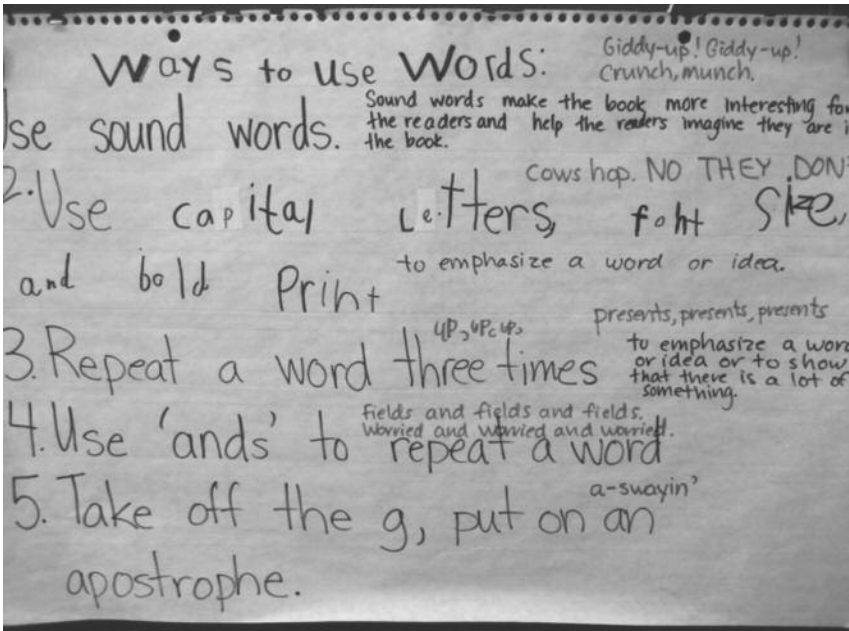 Ways to use Words:
Giddy-up! Giddy-up!
Crunch, munch.
Use sound words.
Sound words make the book more interesting for
the readers and help the readers imagine they are i
the book.
Cows hop. NO THEY DON'
2. Use capital letters, font size,
and bold Print
to emphasize a word or idea.
presents, presents, presents
up, up, up,
3. Repeat a word three times
to emphasize a word
or idea or to show
that there is a lot of
something.
fields and fields and fields.
Worried and worried and worried.
4. Use 'ands' to repeat a word
a-swayin'
5. Take off the g, put on an
apostrophe.